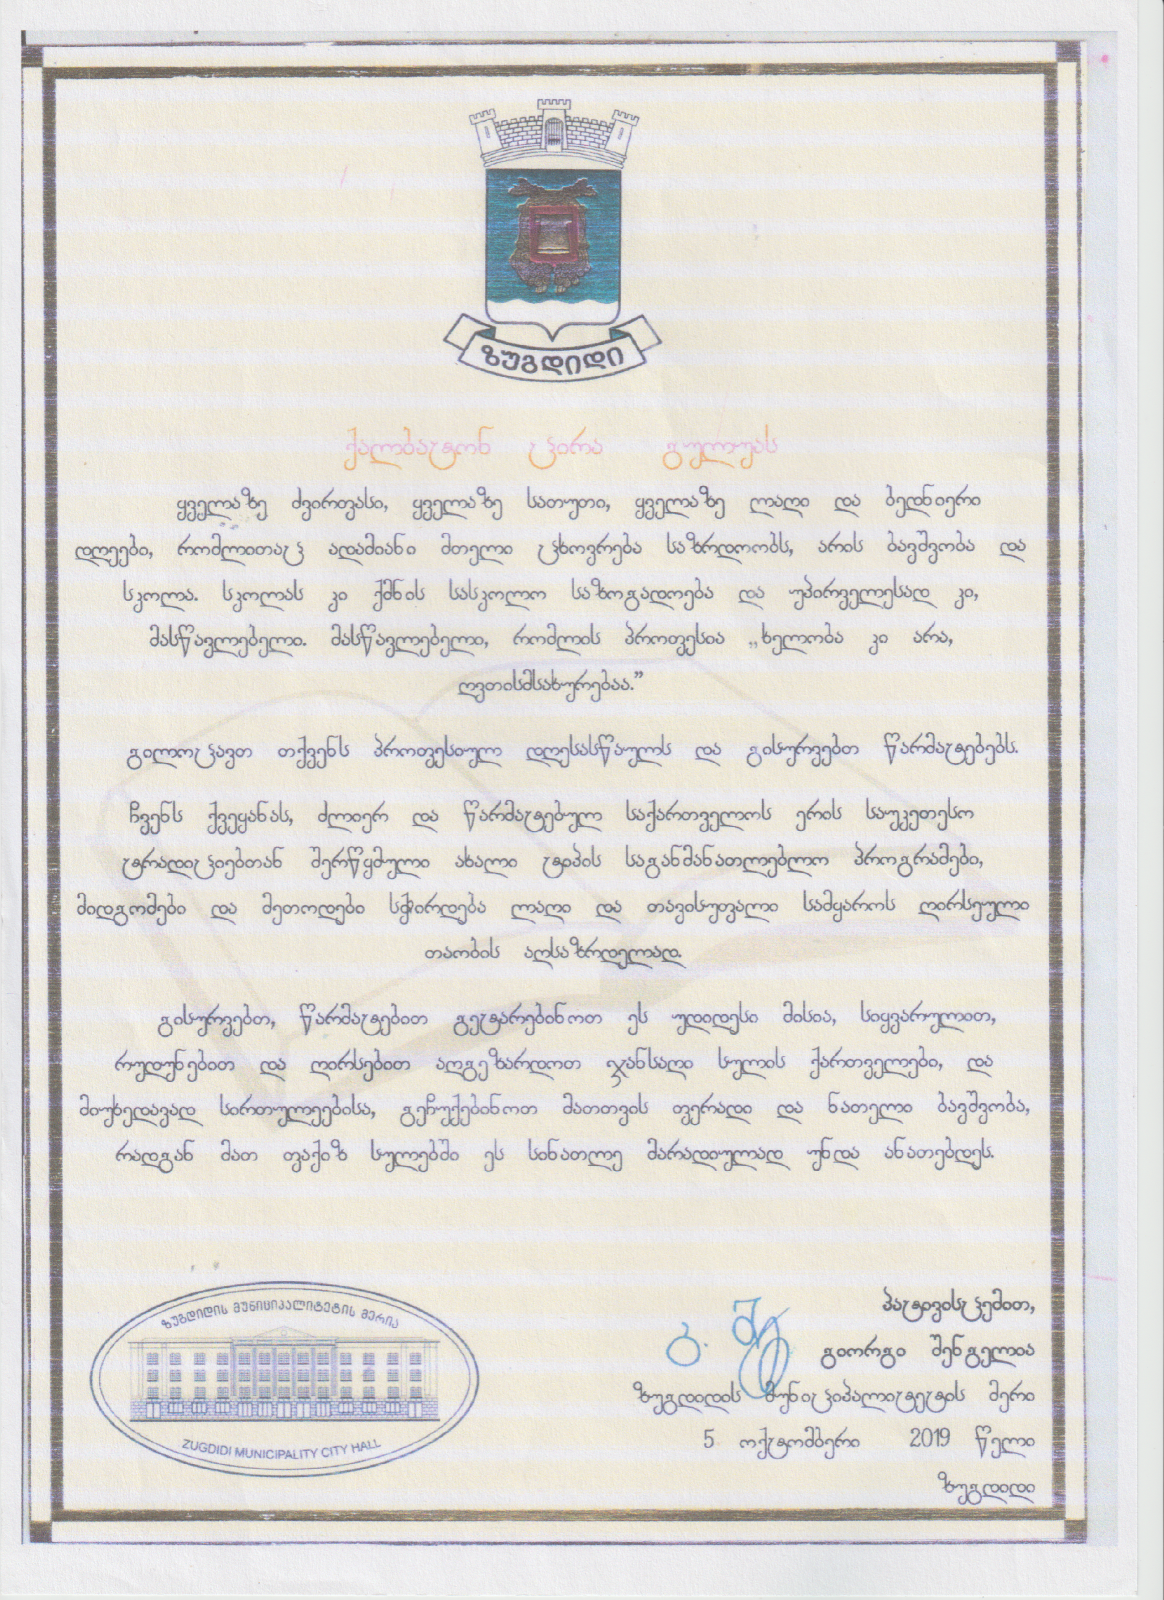 ზუგდიდი
ქალბატონ ცირა გულუას
ყველაზე ძვირფასი, ყველაზე სათუთი, ყველაზე ლაღი და ბედნიერი
დღეები, რომლითაც ადამიანი მთელი ცხოვრება საზრდოობს, არის ბავშვობა და
სკოლა. სკოლას კი ქმნის სასკოლო საზოგადოება და უპირველესად კი,
მასწავლებელი. მასწავლებელი, რომლის პროფესია „ხელობა კი არა,
ღვთისმსახურებაა.”
გილოცავთ თქვენს პროფესიულ დღესასწაულს და გისურვებთ წარმატებებს.
ჩვენს ქვეყანას, ძლიერ და წარმატებულ საქართველოს ერის საუკეთესო
ტრადიციებთან შერწყმული ახალი ტიპის საგანმანათლებლო პროგრამები,
მიდგომები და მეთოდები სჭირდება ლაღი და თავისუფალი სამყაროს ღირსეული
თაობის აღსაზრდელად.
გისურვებთ, წარმატებით გეტარებინოთ ეს უდიდესი მისია, სიყვარულით,
რუდუნებით და ღირსებით აღგეზარდოთ ჯანსაღი სულის ქართველები, და
მიუხედავად სირთულეებისა, გეჩუქებინოთ მათთვის ფერადი და ნათელი ბავშვობა,
რადგან მათ ფაქიზ სულებში ეს სინათლე მარადიულად უნდა ანათებდეს.
პატივისცემით,
გიორგი შენგელია
ზუგდიდის მუნიციპალიტეტის მერი
5 ოქტომბერი 2019 წელი
ზუგდიდი
ზუგდიდის მუნიციპალიტეტის მერია
ZUGDIDI MUNICIPALITY CITY HALL